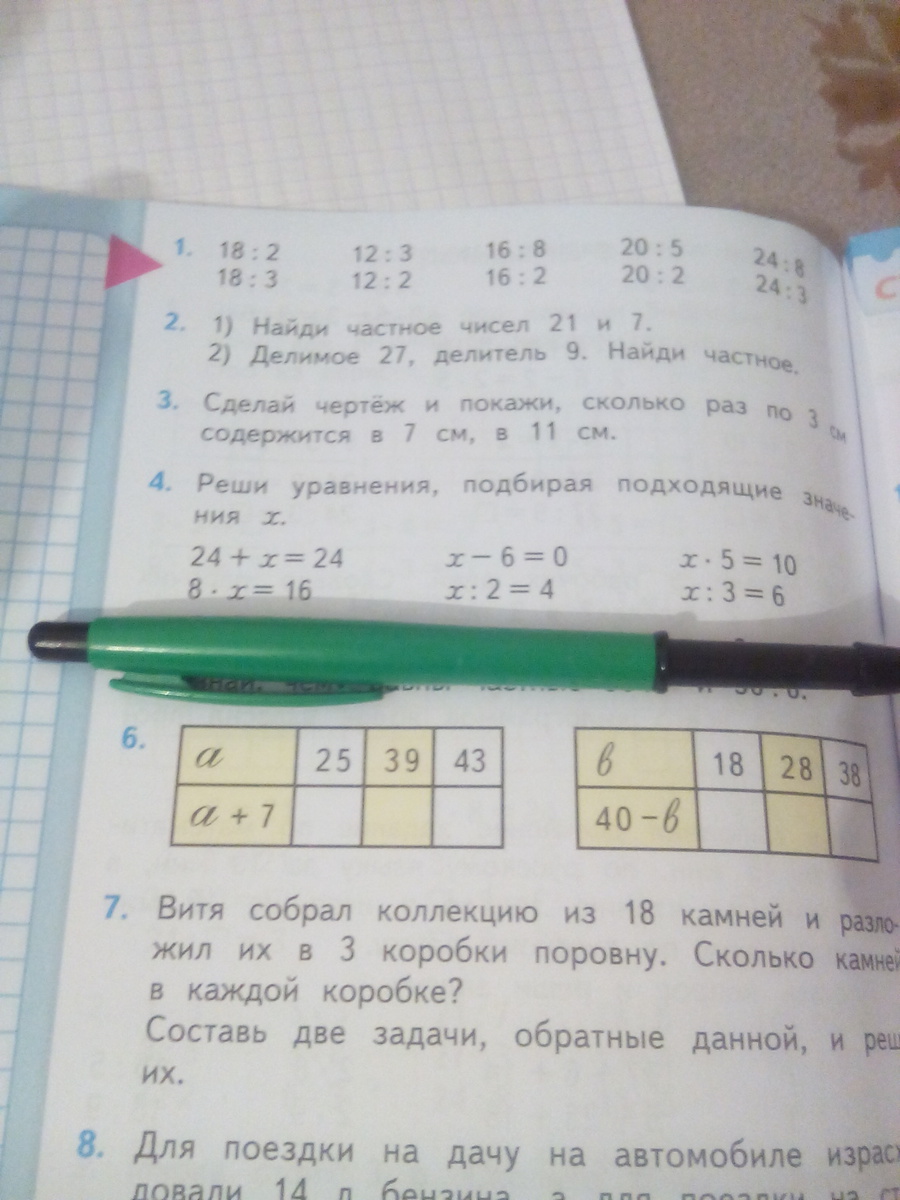 1. 18 : 2 12 : 3 16 : 8 20 : 5 24 : 8
18 : 3 12 : 2 16 : 2 20 : 2 24 : 3
2. 1) Найди частное чисел 21 и 7.
2) Делимое 27, делитель 9. Найди частное.
3. Сделай чертёж и покажи, сколько раз по 3 см
содержится в 7 см, в 11 см.
4. Реши уравнения, подбирая подходящие значе-
ния x.
24 + x = 24 x − 6 = 0 x · 5 = 10
8 · x = 16 x : 2 = 4 x : 3 = 6
6. a 25 39 43 в 18 28 38
a + 7 40 − в
7. Витя собрал коллекцию из 18 камней и разло-
жил их в 3 коробки поровну. Сколько камней
в каждой коробке?
Составь две задачи, обратные данной, и реш
их.
8. Для поездки на дачу на автомобиле израсх
довали 14 л бензина, а для поездки на ст